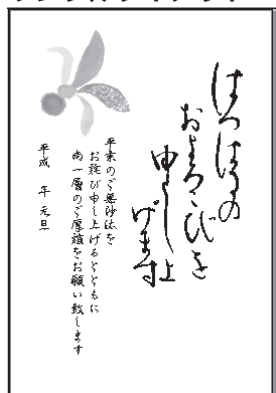 はつはるの
およろこびを
申し上
げます
平素のご無沙汰を
お詫び申し上げるとともに
尚一層のご厚誼をお願い致します
平成　年 元旦